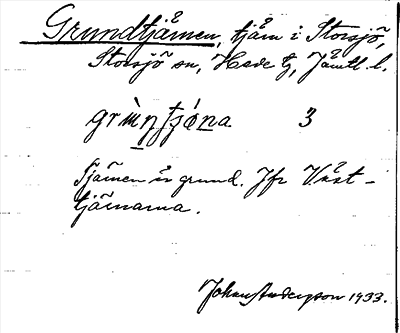 Grundtjärnen, tjärn i Storsjö,
Storsjö sn, Hede tg, Jämtl. l.
3
Tjärnen är grund. Jfr Väst-
tjärnarna.
Johan Anderzson 1933.